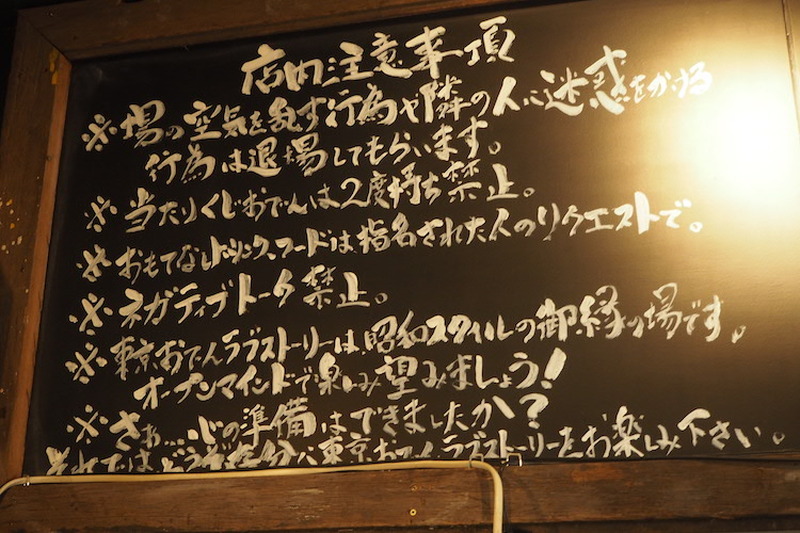 店内注意事項
※場の空気を乱す行為や隣の人に迷惑をかける
行為は退場してもらいます。
※当たりくじおでんは2度持ち禁止。
※おもてなしドリンク、フードは指名された人のリクエストで。
※ネガティブトーク禁止。
※東京おでんラブストーリーは、昭和スタイルの御縁の場です。
オープンマインドで楽しみ望みましょう!
※さぁ...心の準備はできましたか?
それではどうぞ存分に東京おでんラブストーリーをお楽しみ下さい。